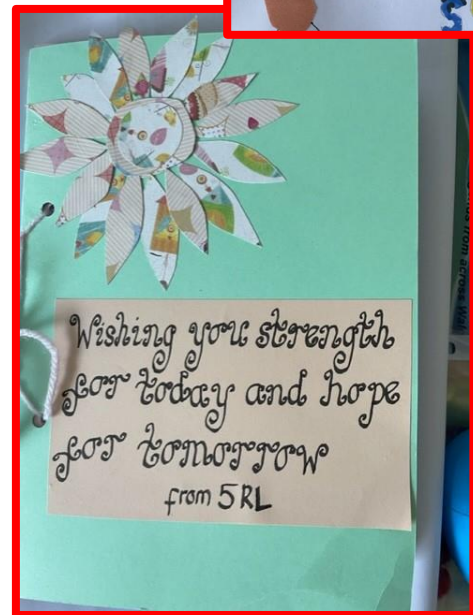 Wishing you strength
for today and hope
for tomorrow
from 5RL